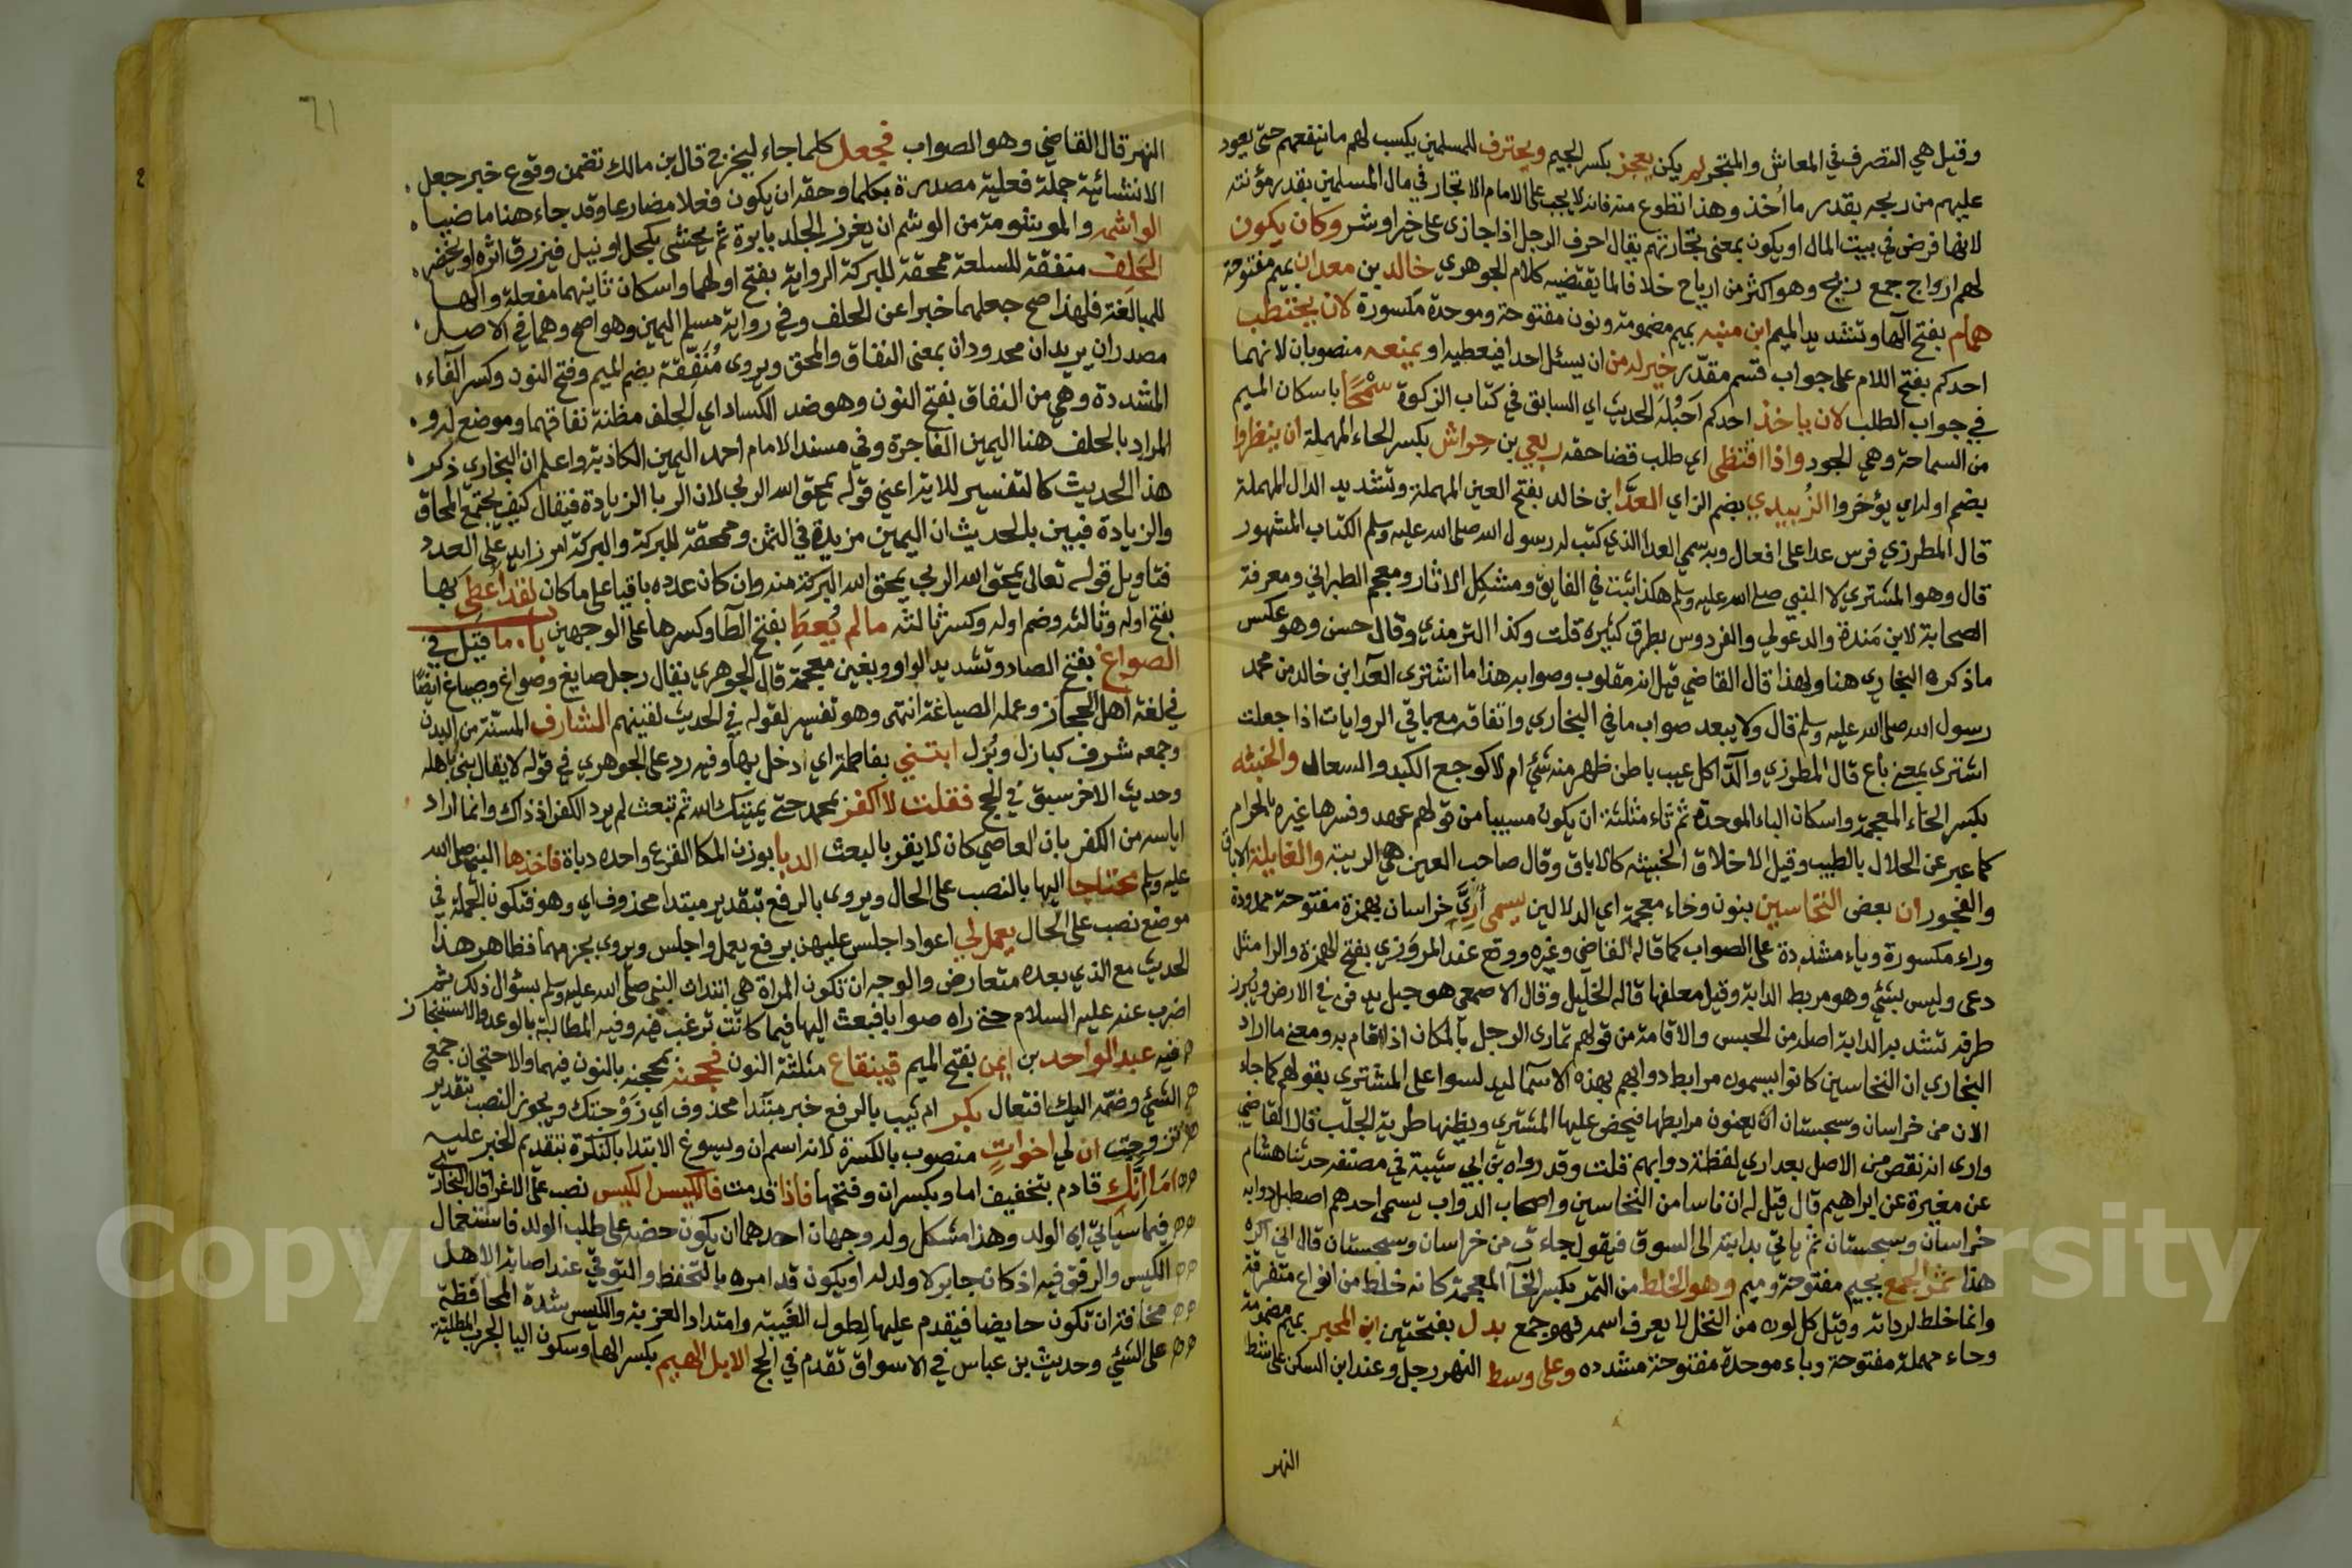 وقيل هي التصرف في المعاش والمتجر لم يكن يعجز بكسر الجيم ويحترف للمسلمين يكسب لهم ما ينفعهم حتى يعود
عليهم من ربحه بقدر ما أخذ وهذا تطوع منه فانه لا يجب على الامام الاتجار في مال المسلمين بقدر مؤنته
لانها فرض في بيت المال او يكون بمعنى تجارتهم يقال احرف الرجل اذا جازى على خير او شر وكان يكون
لهم ارواح جمع ريح وهو اكثر من ارياح خلافا لما يقتضيه كلام الجوهري خالد بن معدان بميم مفتوحة
همام بفتح الها وتشديد الميم ابن منبه بميم مضمومة ونون مفتوحة وموحدة مكسورة لان يحتطب
احدكم بفتح اللام على جواب قسم مقدر خير له من ان يسئل احدا فيعطيه او يمنعه منصوبان لانهما
في جواب الطلب لان ياخذ احدكم احبله الحديث اي السابق في كتاب الزكوة سمحا باسكان الميم
من السماحة وهي الجود واذا اقتضى اي طلب قضا حقه ربعي بن حراش بكسر الحاء المهملة ان ينظروا
بضم اوله اي يؤخروا الزبيدي بضم الزاي العدا ابن خالد بفتح العين المهملة وتشديد الدال المهملة
قال المطرزي فرس عدا على افعال وبه سمي العدا الذي كتب له رسول الله صلى الله عليه وسلم الكتاب المشهور
قال وهو المشتري لا النبي صلى الله عليه وسلم هكذا ثبت في الفايق ومشكل الاثار ومعجم الطبراني ومعرفة
الصحابة لابن مندة والدعولي والفردوس بطرق كثيره قلت وكذا الترمذي وقال حسن وهو عكس
ماذكره البخاري هنا ولهذا قال القاضي قيل انه مقلوب وصوابه هذا ما اشترى العدا ابن خالد من محمد
رسول الله صلى الله عليه وسلم قال ولا يبعد صواب ما في البخاري واتفاقه مع باقي الروايات اذا جعلت
اشترى بمعنى باع قال المطرزي والدا كل عيب باطن ظهر منه شئ ام لا كوجع الكبد والسعال والخبثه
بكسر الخاء المعجمة واسكان الباء الموحدة ثم ثاء مثلثة ان يكون مسبيا من قوم لهم عهد وفسرها غيره بالحرام
كما عبر عن الحلال بالطيب وقيل الاخلاق الخبيثه كالاباق وقال صاحب العين هي الريبة والغايلة الاباق
والفجور ان بعض النخاسين بنون وخاء معجمة اي الدلالين يسمى أرى خراسان بهمزة مفتوحة ممدودة
وراء مكسورة وياء مشددة على الصواب كما قاله القاضي وغيره ووقع عند المروزي بفتح الهمزة والرا مثل
دعى وليس بشئ وهو مربط الدابة وقيل معلفها قاله الخليل وقال الاصمعي هو حبل يدفن في الارض ويبرز
طرفه تشد به الدابة اصله من الحبس والاقامة من قولهم تمارى الرجل بالمكان اذا اقام به ومعنى ما اراد
البخاري ان النخاسين كانوا يسمون مرابط دوابهم بهذه الاسما ليدلسوا على المشتري بقولهم كما جاء
الان من خراسان وسجستان ان يعنون مرابطها فيحرص عليها المشتري ويظنها طرية الجلب قال القاضي
وارى انه نقص من الاصل بعد اري لفظة دوابهم قلت وقد رواه بن ابي شيبة في مصنفه حدثنا هشام
عن مغيرة عن ابراهيم قال قيل له ان ناسا من النخاسين واصحاب الدواب يسمى احدهم اصطبل دوابه
خراسان وسجستان ثم ياتي بدابته الى السوق فيقول جاءت من خراسان وسجستان قال اني اكره
هذا تمر الجمع بجيم مفتوحة وميم وهو الخلط من التمر بكسر الخا المعجمة كانه خلط من انواع متفرقة
وانما خلط لرداته وقيل كل لون من النخل لا يعرف اسمه فهو جمع بدل بفتحتين ابن المحبر بميم مضمومة
وحاء مهملة مفتوحة وباء موحدة مفتوحة مشدده وعلى وسط النهر رجل وعند ابن السكن على شط
النهر
٦١
النهر قال القاضي وهو الصواب فجعل كلما جاء ليخرج قال بن مالك تضمن وقوع خبر جعل
الانشائية جملة فعلية مصدرة بكلما وحقه ان يكون فعلا مضارعا وقد جاء هنا ماضيا
الواشمه والموشومة من الوشم ان يغرز الجلد بابرة ثم يحشى بكحل او نيل فيزرق اثره او يخضر
الحلف منفقة للسلعة ممحقة للبركة الرواية بفتح اولهما واسكان ثانيهما مفعلة والها
للمبالغة فلهذا صح جعلهما خبرا عن الحلف وفي رواية مسلم اليمين وهو اصح وهما في الاصل
مصدران يريدان محدودان بمعنى النفاق والمحق ويروى مُنَفِّقة بضم الميم وفتح النون وكسر الفاء
المشددة وهي من النفاق بفتح النون وهو ضد الكساد اي الحلف مظنة نفاقهما وموضع له و
المراد بالحلف هنا اليمين الفاجرة وفي مسند الامام احمد اليمين الكاذبة واعلم ان البخاري ذكر
هذا الحديث كالتفسير للاية اعني قوله يمحق الله الربى لان الربا الزيادة فيقال كيف يجتمع المحاق
والزيادة فبين بالحديث ان اليمين مزيدة في الثمن وممحقة للبركة والبركة امر زايد على العدد
فتاويل قوله تعالى يمحق الله الربى يمحق الله البركة منه وان كان عدده باقيا على ما كان لقد اعطى بها
بفتح اوله وثالثه وضم اوله وكسر ثالثه مالم يُعطَِ بفتح الطا وكسرها على الوجهين باب ما قيل في
الصواغ بفتح الصاد وتشديد الواو وبغين معجمة قال الجوهري يقال رجل صايغ وصواغ وصياغ ايضا
في لغة اهل الحجاز وعمله الصياغة انتهى وهو تفسير لقوله في الحديث لقينهم الشارف المسنة من البدن
وجمعه شرف كبازل وبُزل ابتني بفاطمة اي ادخل بها وفيه رد على الجوهري في قوله لا يقال بنى باهله
وحديث الاخر سبق في الحج فقلت لا اكفر بمحمد حتى يميتك الله ثم تبعث لم يرد الكفر اذ ذاك وانما اراد
اياسه من الكفر بان العاصي كان لا يقر بالبعث الدبا بوزن المكا القرع واحده دباة فاخذها النبي صلى الله
عليه وسلم محتاجا اليها بالنصب على الحال ويروى بالرفع بتقدير مبتدا محذوف اي وهو فتكون الجملة في
موضع نصب على الحال يعمل لي اعوادا اجلس عليهن برفع يعمل واجلس ويروى بجزمهما فظاهر هذا
الحديث مع الذي بعده متعارض والوجه ان تكون المراة هي ابتدات النبي صلى الله عليه وسلم بسؤال ذلك ثم
اضرب عنه عليه السلام حتى راه صوابا فبعث اليها فيما كانت ترغب فيه وفيه المطالبة بالوعد والاستنجاز
فيه عبد الواحد بن ايمن بفتح الميم قينقاع مثلثة النون فحجنه بمحجنه بالنون فيهما والاحتجان جمع
الشئ وضمه اليك افتعال بكر ام ثيب بالرفع خبر مبتدا محذوف اي زوجتك ويجوز النصب بتقدير
تزوجت ان لي اخواتٍ منصوب بالكسرة لانه اسم ان ويسوغ الابتدا بالنكرة بتقديم الخبر عليه
اما انك قادم بتخفيف اما وبكسر ان وفتحها فاذا قدمت فالكيس الكيس نصب على الاغرا قال البخاري
فيما سياتي اي الولد وهذا مشكل وله وجهان احدهما ان يكون حضه على طلب الولد فاستعمال
الكيس والرفق فيه اذ كان جابر لا ولد له او يكون قد امره بالتحفظ والتوقي عند اصابة الاهل
مخافة ان تكون حايضا فيقدم عليها لطول الغيبة وامتداد العزبة والكيس شدة المحافظة
على الشئ وحديث بن عباس في الاسواق تقدم في الحج الابل الهيم بكسر الها وسكون اليا الجرب المطلية